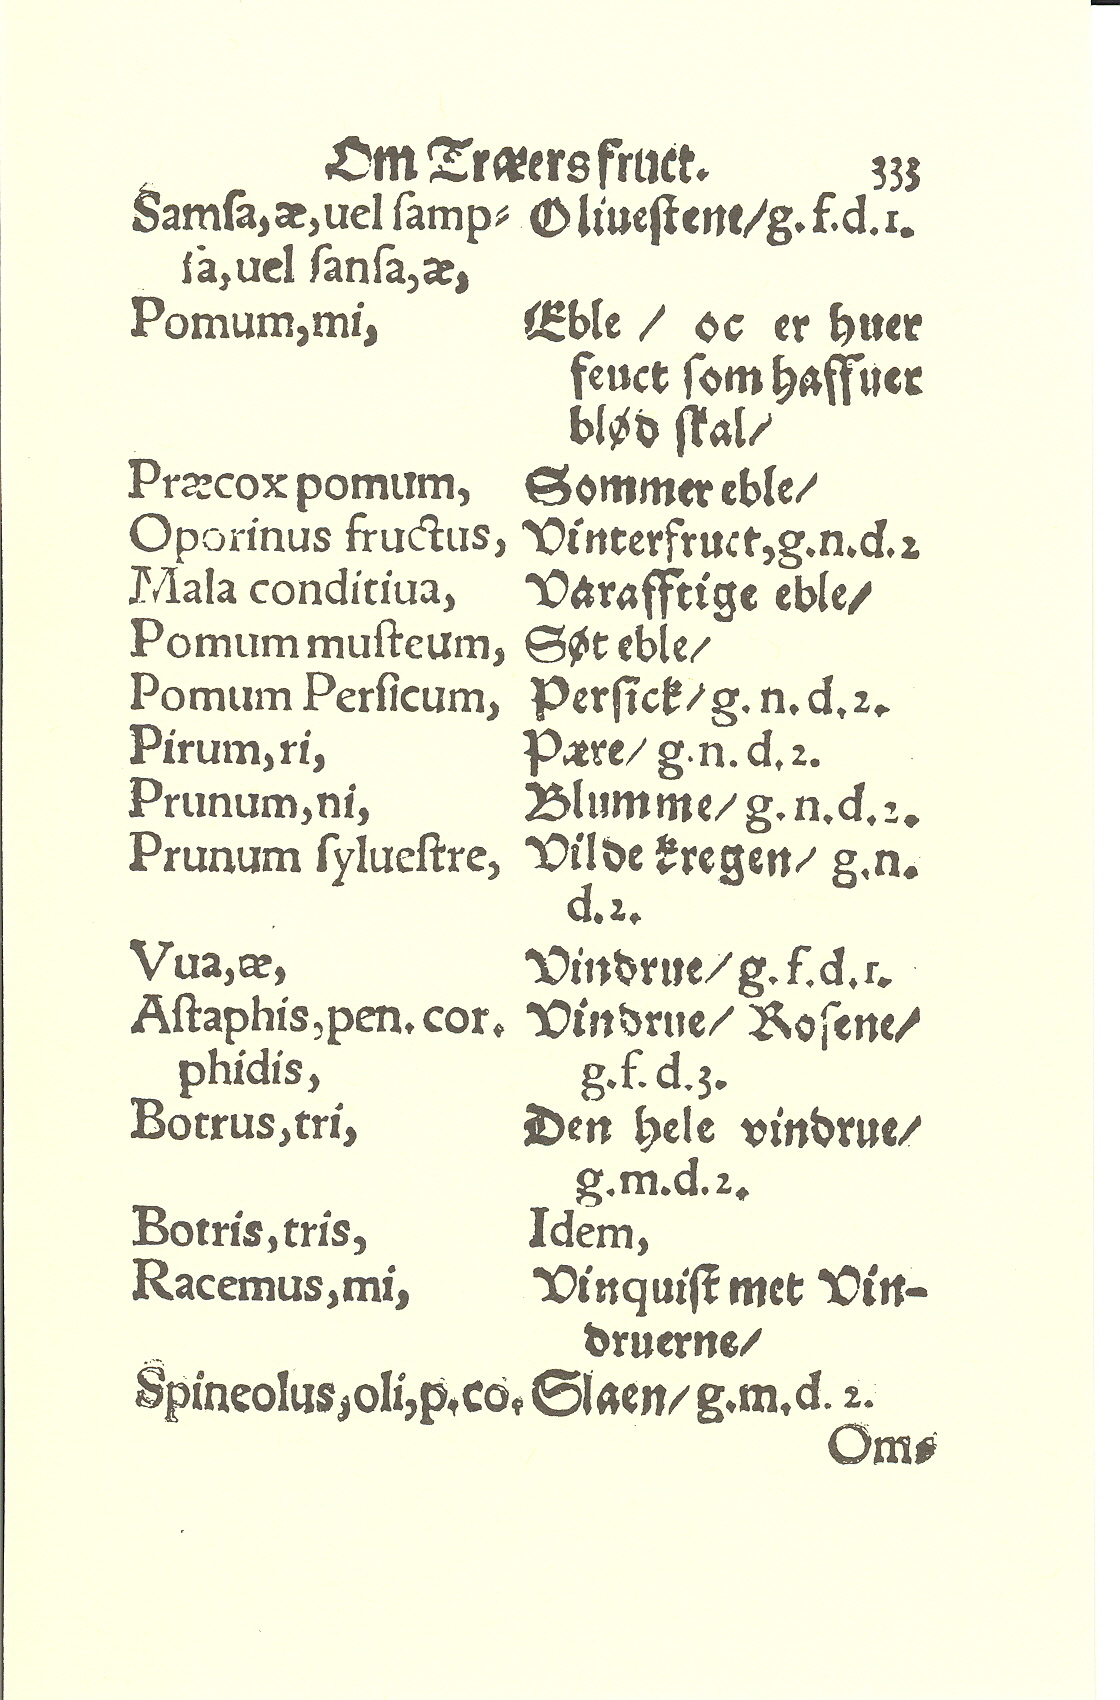 Om Træers fruct. 333
Samſa, æ, uel ſamp⸗ Oliueſtene/ g. f. d. 1.
ſa, uel ſanſa, æ,
Pomum, mi, Eble / oc er huer
feuct ſom haffuer
blød ſkal/
Præcox pomum, Sommer eble/
Oporinus fructus, Vinterfruct, g. n. d. 2
Mala conditiua, Varafftige eble/
Pomum muſteum, Søt eble/
Pomum Perſicum, Perſick/ g. n. d. 2.
Pirum, ri, Pære/ g. n. d. 2.
Prunum, ni, Blumme/ g. n. d. 2.
Prunum ſylueſtre, Vilde kregen/ g. n.
d. 2.
Vua, æ, Vindrue/ g. f. d. 1.
Aſtaphis, pen. cor. Vindrue/ Roſene/
phidis, g. f. d. 3.
Botrus, tri, Den hele vindrue/
g. m. d. 2.
Botris, tris, Idem,
Racemus, mi, Vinquiſt met Vin-
druerne/
Spineolus, oli, p. co. Slaen/ g. m. d. 2.
Om⸗